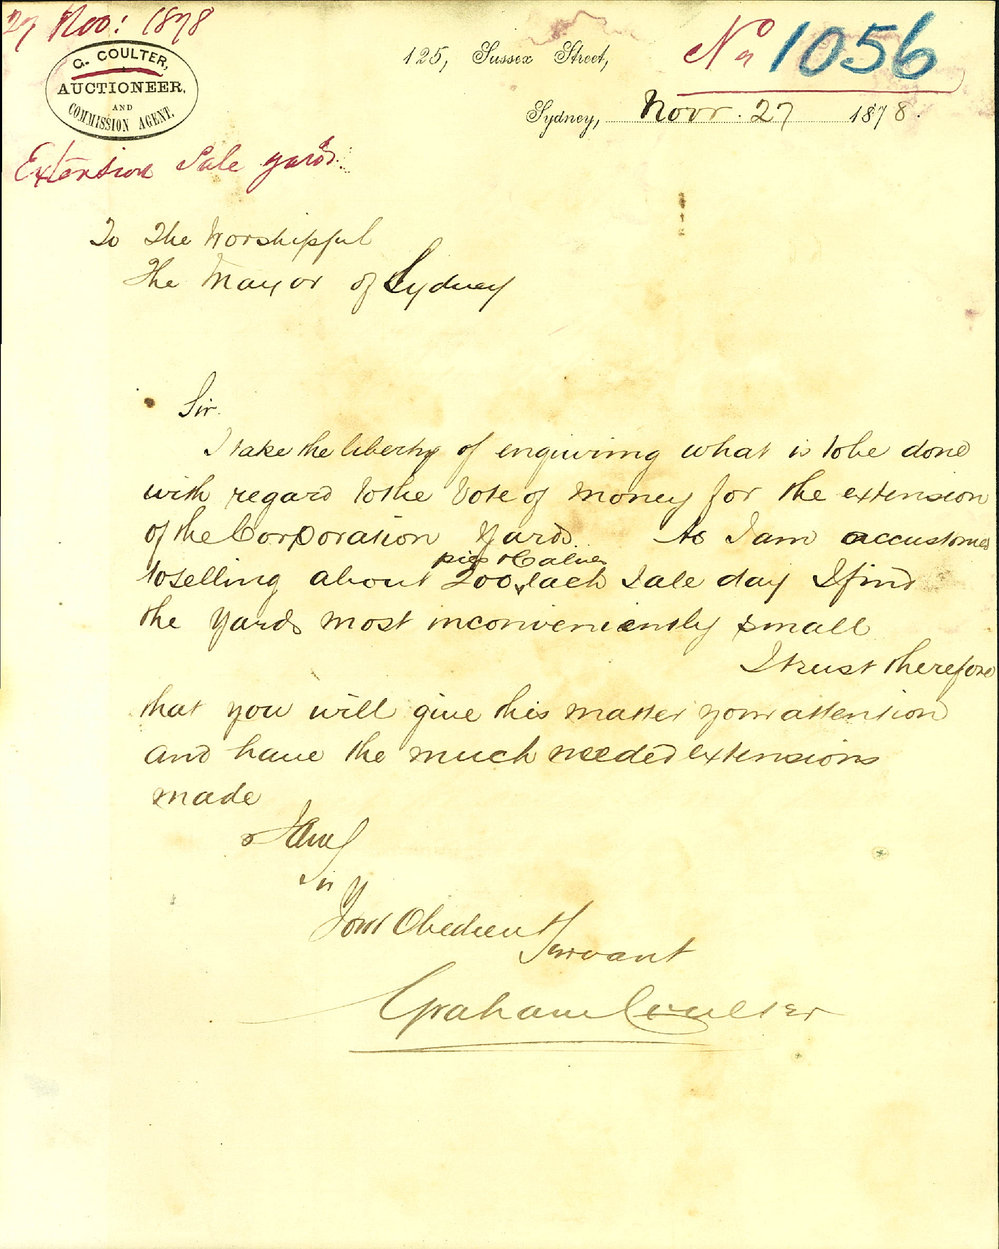 27 Nov: 1878
G. COULTER,
AUCTIONEER,
AND
COMMISSION AGENT.
125, Sussex Street,
No 1056
Sydney, Novr. 27 1878.
Extension Sale yards.
To The Worshipful
The Mayor of Sydney
Sir.
I take the liberty of enquiring what is to be done
with regard to the Vote of money for the extension
of the Corporation Yards. As I am accustomed
pigs & Calves
to selling about 200, each Sale day I find
the Yards most inconveniently small
I trust therefore
that you will give this matter your attention
and have the much needed extensions
made
I am
Sir
Your Obedient
Servant
Graham Coulter